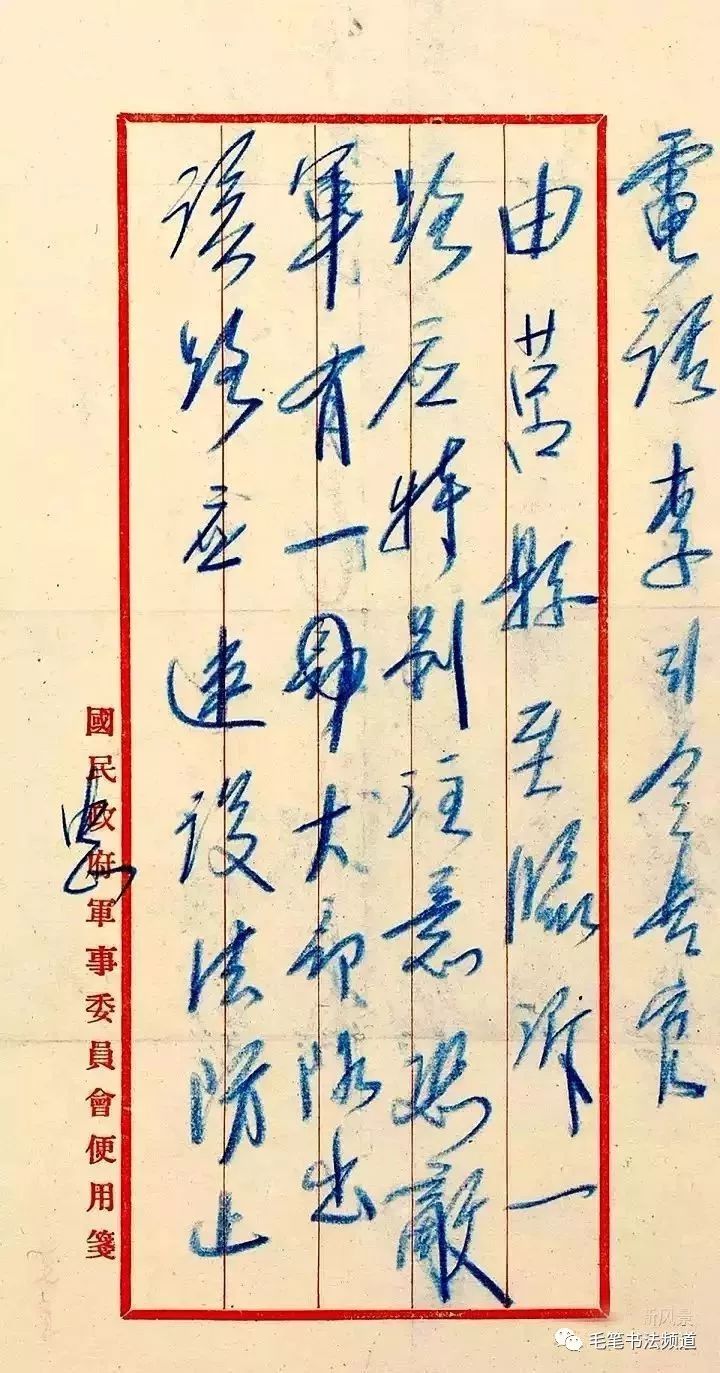 電話李司令長官
由莒縣至臨沂一
路应特别注意恐敵
軍有一師大部隊出
該路应速設法防止
中正
國民政府軍事委員會便用箋
新风景
毛笔书法频道